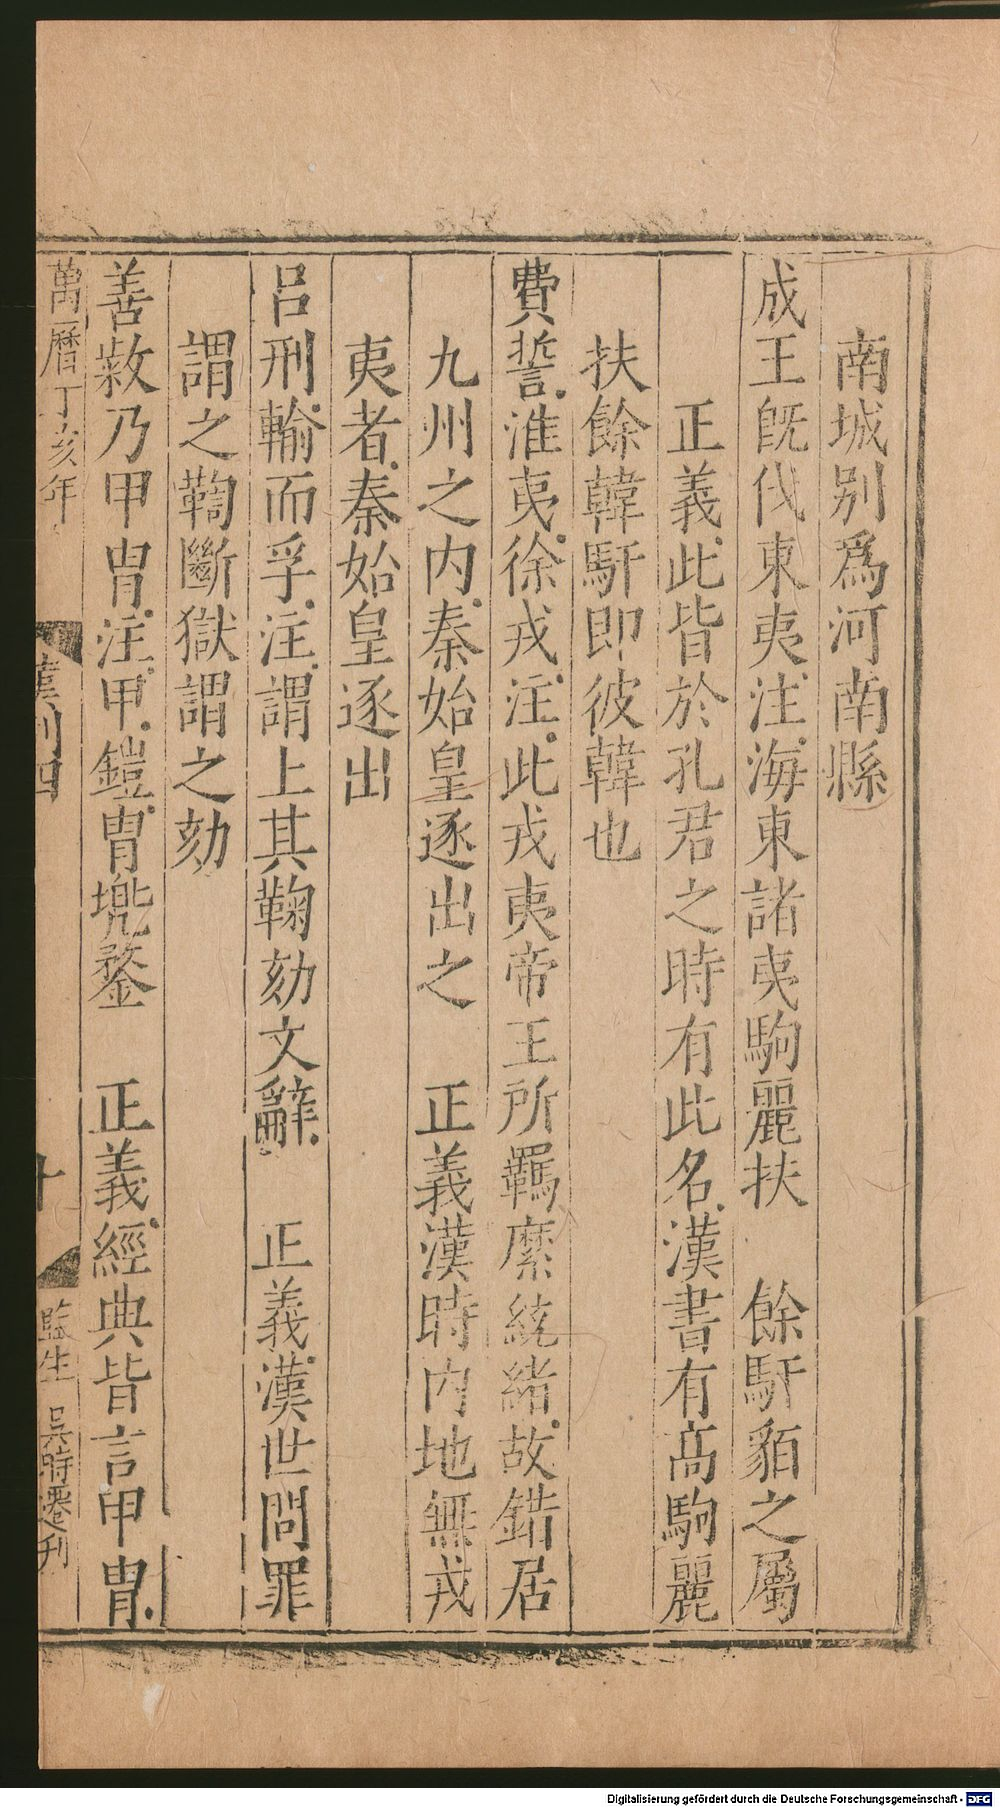 南城别爲河南縣
成王旣伐東夷注海東諸夷駒麗扶　餘馯貊之屬
正義此皆於孔君之時有此名漢書有高駒麗
扶餘韓馯即彼韓也
費誓淮夷徐戎注此戎夷帝王所羈縻統緒故錯居
九州之内秦始皇逐出之　正義漢時内地無戎
夷者秦始皇逐出
吕刑輸而孚注謂上其鞠劾文辭　正義漢世問罪
謂之鞫斷獄謂之劾
善敹乃甲冑注甲鎧冑兠鍪　正義經典皆言甲冑
萬曆丁亥年　漢制四　十　監生　吳時遷刊
Digitalisierung gefördert durch die Deutsche Forschungsgemeinschaft - DFG